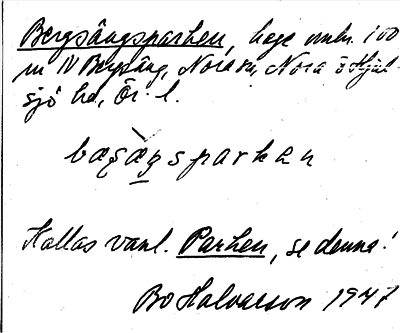 Bergsängsparken, hage omkr. 100
m N Bergsäng, Nora sn, Nora o Hjul-
sjö hd, Ör. l.
bæʂæŋsparken
Kallas vanl. Parken, se denna!
Bo Halvarson 1947